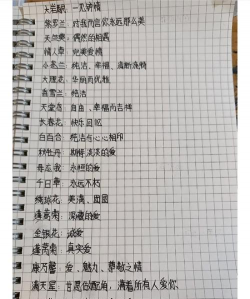 天竺葵:一见钟情
紫罗兰:对我而言你永远那么美
天堂:偶然的相遇
情人草:完美爱情
小苍兰:纯洁、幸福、清新舒畅
大丽花:华丽而优雅
雪兰:纯洁
天堂鸟:自由、幸福而吉祥
长春花:快乐回忆
白百合:纯洁与心心相印
秋牡丹:期待淡淡的爱
勿忘我:永恒的爱
千日草:永远不朽
绣球花:美满、团圆
蓬莴菊:深藏的爱
金银花:诚爱
蓬莴菊:真实爱
康乃馨:爱、魅力、尊敬之情
满天星:甘愿做配角,满着所有人爱你